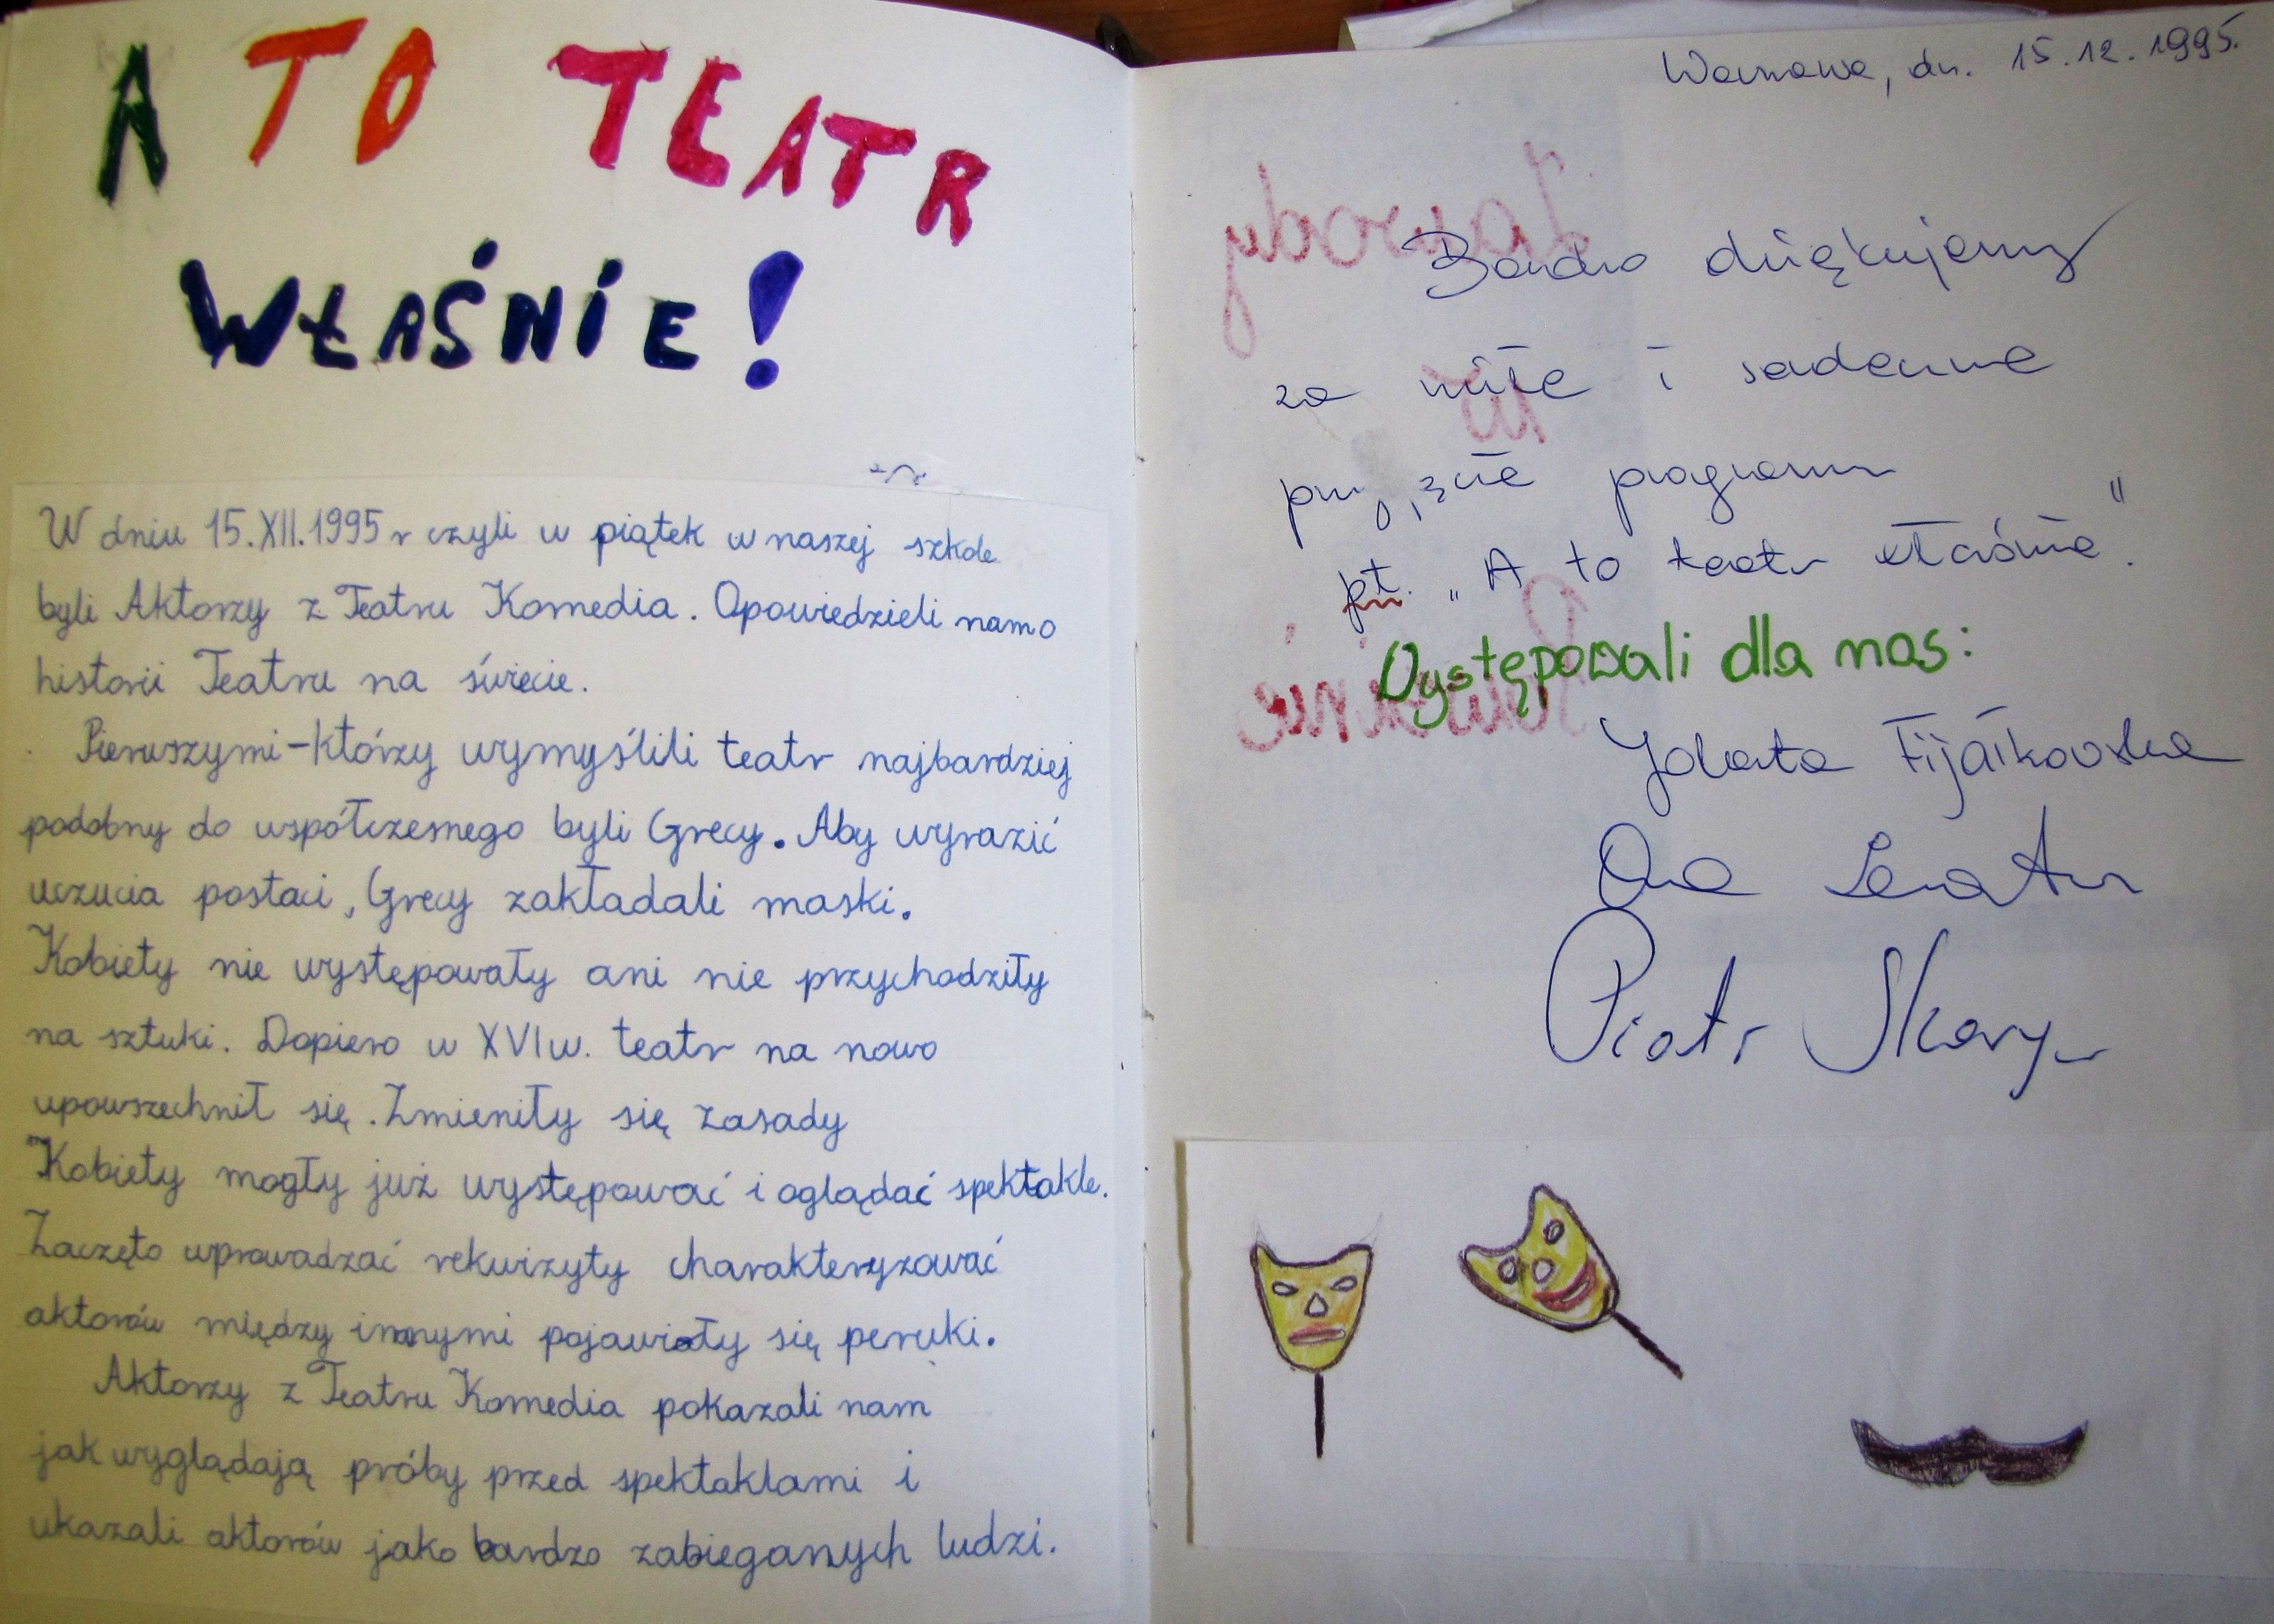 A TO TEATR
WŁAŚNIE!
W dniu 15.XII.1995 r czyli w piątek w naszej szkole
byli Aktorzy z Teatru Komedia. Opowiedzieli nam o
historii Teatru na świecie.
Pierwszymi-którzy wymyślili teatr najbardziej
podobny do współczesnego byli Grecy. Aby wyrazić
uczucia postaci, Grecy zakładali maski.
Kobiety nie występowały ani nie przychodziły
na sztuki. Dopiero w XVI w. teatr na nowo
upowszechnił się. Zmieniły się zasady
Kobiety mogły już występować i oglądać spektakle.
Zaczęto wprowadzać rekwizyty charakteryzować
aktorów między innymi pojawiały się peruki.
Aktorzy z Teatru Komedia pokazali nam
jak wyglądają próby przed spektaklami i
ukazali aktorów jako bardzo zabieganych ludzi.
Warszawa, dn. 15.12.1995.
Bardzo dziękujemy
za miłe i serdeczne
przyjęcie programu
pt. „A to teatr właśnie".
Występowali dla nas:
Jolanta Fijałkowska
Piotr Skarga